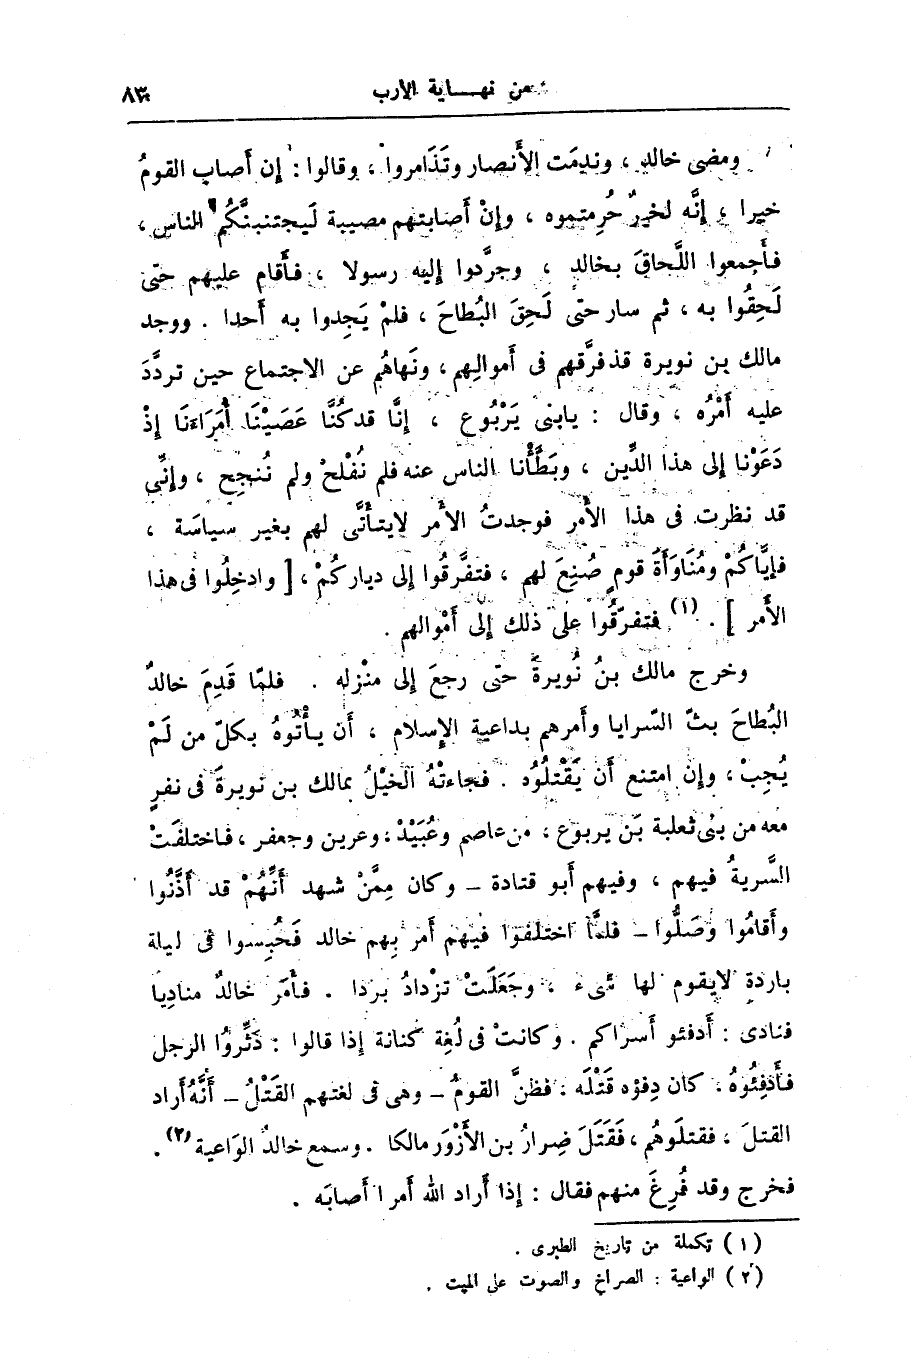 من نهـــاية الأرب ٨٣
ومضى خالد ، وندِمَت الأَنصار وتَذَامروا ، وقالوا : إن أصاب القومُ
خيرا ، إنَّه لخيرٌ حُرِمتموه ، وإنْ أصابتهم مصيبة لَيجتنبنَّكُم الناس ،
فأَجمعوا اللَّحاقَ بخالدٍ ، وجرَّدوا إليه رسولا ، فأَقام عليهم حتى
لَحِقُوا به ، ثم سار حتى لَحِقَ البُطاحَ ، فلمْ يَجِدوا به أَحدا . ووجد
مالك بن نويرة قد فرَّقهم فى أموالِهم ، ونَهاهُم عن الاجتماع حين تردَّدَ
عليه أَمْرُه ، وقال : يابنى يَرْبُوع ، إنَّا قد كُنَّا عَصَيْنَا أُمَرَاءَنَا إذْ
دَعَوْنا إلى هذا الدِّين ، وبَطَّأْنا الناس عنه فلم نُفْلحْ ولم نُنجِح ، وإنِّى
قد نظرت فى هذا الأَمْرِ فوجدتُ الأَمر لايتأَتَّى لهم بغير سياسَة ،
فإيَّاكُمْ ومُنَاوَأَةَ قومٍ صُنِعَ لهم ، فتفرَّقُوا إلى دياركُمْ ، [ وادخِلُوا فى هذا
الأَمر ] . (١) فتفرّقُوا على ذلك إلَى أَمْوالهم .
وخرج مالك بنُ نُويرةَ حتى رجعَ إلى منْزله . فلمّا قَدِمَ خالدٌ
البُطَاحَ بثّ السّرايا وأمرهم بداعية الإسلام ، أن يأْتُوهُ بكلّ من لَمْ
يُجِبْ ، وإن امتنع أن يَقْتلُوُه . فجاءتْهُ الخيْلُ بمالك بن نويرةَ فى نفرٍ
معه من بنى ثعلبة بَن يربوع ، من عاصم وعُبَيْدْ ، وعرين وجعفر ، فاختلفَتْ
السَّريةُ فيهم ، وفيهم أبو قتادة – وكان مِمَّنْ شهد أَنَّهُمْ قد أذَّنُوا
وأَقامُوا وصَلُّوا – فلمَّا اختلفوا فيهم أمر بهم خالد فَحُبِسوا فى ليلة
باردةٍ لايقوم لها شىء ، وجَعَلَتْ تزْدادُ بردا . فأَمَر خالدٌ مناديا
فنادى : أدفئو أسراكم . وكانتْ فى لُغِة كنانة إذا قالوا : دَثِّرُوا الرجل
فأَدْفِئُوهُ ، كان دِفؤه قَتْلَه : فظنَّ القومُ – وهى فى لغتهم القَتْلُ – أنَّهُ أراد
القتلَ ، فقتلُوهُم ، فَقَتَلَ ضِرارُ بن الأَزْوَر مالكا . وسمع خالدٌ الوَاعية (٢) .
فخرج وقد فُرِغَ منهم فقال : إذا أراد الله أمرا أصابَه .
(١) تكملة من تاريخ الطبرى .
(٢) الواعية : الصراخ والصوت على الميت .